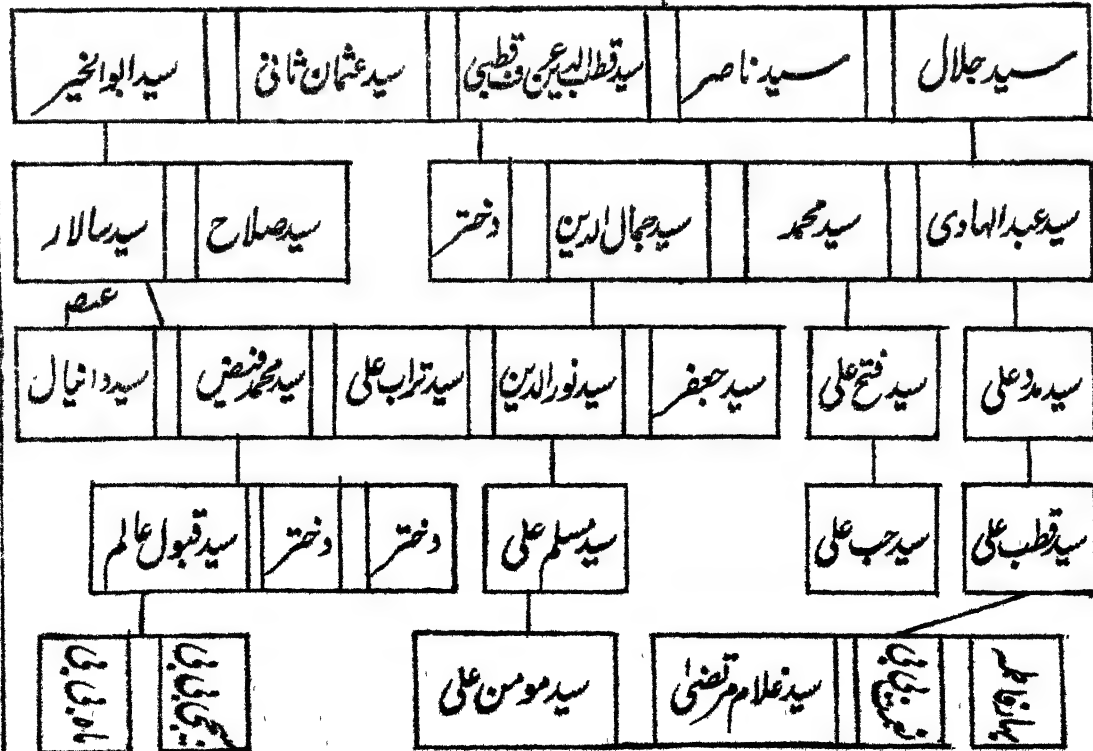 سید جلال سید ناصر سید قطب الدین عرف قطبی سید عثمان ثانی سید ابوالخیر
سید عبدالهادی سید محمد سید جمال الدین دختر سید صلاح سید سالار
سید مدد علی سید فتح علی سید جعفر سید نور الدین سید تراب علی سید محمد فیض سید دانیال
سید قطب علی سید حب علی سید مسلم علی دختر دختر سید قبول عالم
سید غلام مرتضیٰ سید مومن علی